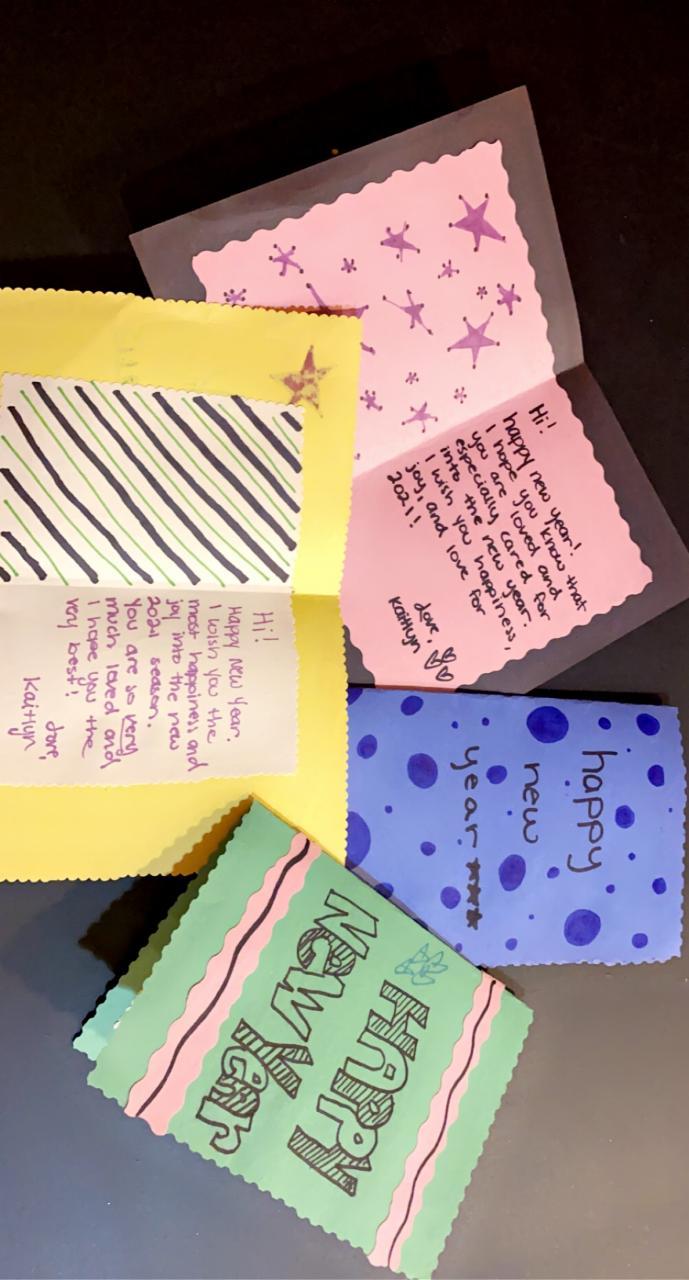 Hi!
happy new year!
I hope you know that
you are loved and
especially cared for
into the new year.
I wish you happiness,
joy, and love for
2021!
love,
Kaitlyn
happy
new
year
Hi!
Happy New Year.
I wish you the
most happiness and
joy into the new
2021 season.
You are so very
much loved and
I hope you the
very best!
love,
Kaitlyn
HAPPY
NEW YEAR